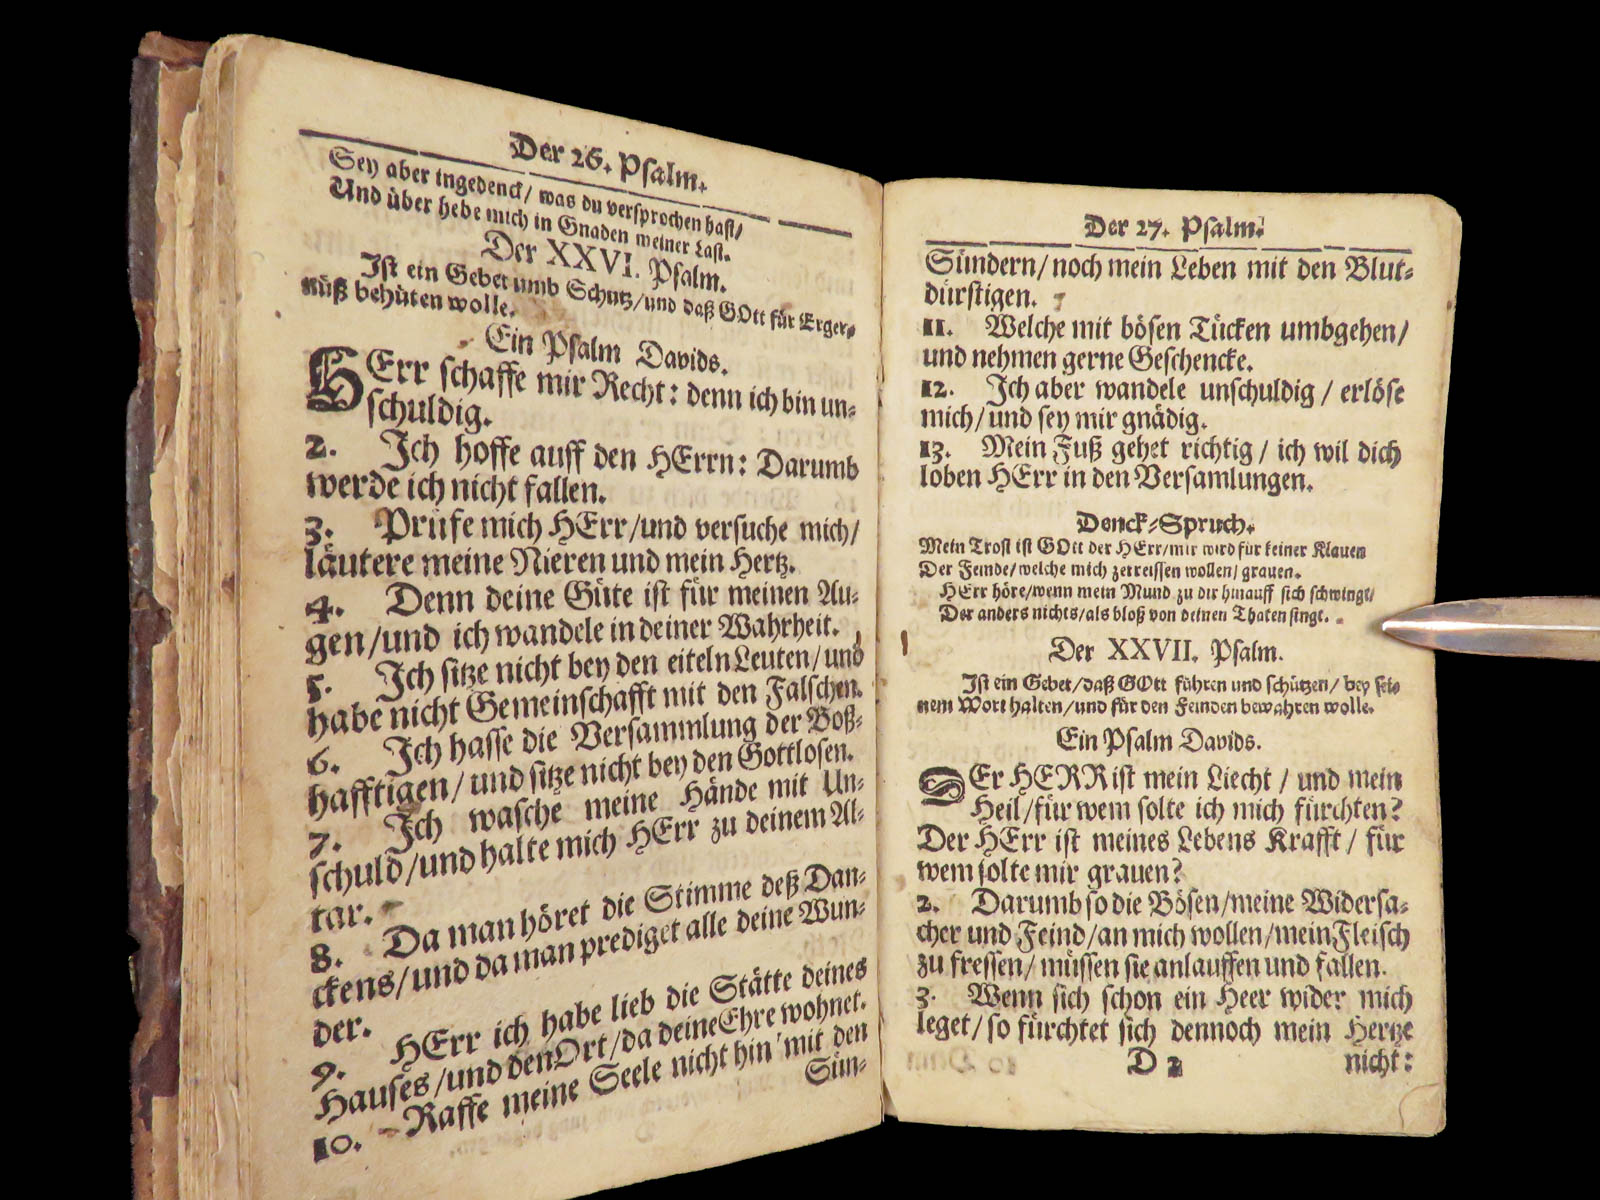 Der 26. Psalm.
Sey aber ingedenck/ was du versprochen hast/
Und über hebe mich in Gnaden meiner Last.
Der XXVI. Psalm.
Ist ein Gebet umb Schutz/und daß GOtt für Erger-
nüß behüten wolle.
Ein Psalm Davids.
HErr schaffe mir Recht: denn ich bin un-
schuldig.
2. Ich hoffe auff den HErrn: Darumb
werde ich nicht fallen.
3. Prüfe mich HErr/und versuche mich/
läutere meine Nieren und mein Hertz.
4. Denn deine Güte ist für meinen Au-
gen/und ich wandele in deiner Wahrheit.
5. Ich sitze nicht bey den eiteln Leuten/und
habe nicht Gemeinschafft mit den Falschen.
6. Ich hasse die Versammlung der Boß-
hafftigen/und sitze nicht bey den Gottlosen.
7. Ich wasche meine Hände mit Un-
schuld/und halte mich HErr zu deinem Al-
tar.
8. Da man höret die Stimme deß Dan-
ckens/und da man prediget alle deine Wun-
der.
9. HErr ich habe lieb die Stätte deines
Hauses/und den Ort/da deine Ehre wohnet.
10. Raffe meine Seele nicht hin mit den
Sün-
Der 27. Psalm.
Sündern/noch mein Leben mit den Blut-
dürstigen.
11. Welche mit bösen Tücken umbgehen/
und nehmen gerne Geschencke.
12. Ich aber wandele unschuldig / erlöse
mich/und sey mir gnädig.
13. Mein Fuß gehet richtig / ich wil dich
loben HErr in den Versamlungen.
Denck-Spruch.
Mein Trost ist GOtt der HErr/mir wird für keiner Klauen
Der Feinde/welche mich zerreissen wollen/grauen.
HErr höre/wenn mein Mund zu dir hinauff sich schwingt/
Der anders nichts/als bloß von deinen Thaten singt.
Der XXVII. Psalm.
Ist ein Gebet/daß GOtt führen und schützen/ bey sei-
nem Wort halten/und für den Feinden bewahren wolle.
Ein Psalm Davids.
DEr HERR ist mein Liecht / und mein
Heil/für wem solte ich mich fürchten?
Der HErr ist meines Lebens Krafft / für
wem solte mir grauen?
2. Darumb so die Bösen/meine Widersa-
cher und Feind/an mich wollen/mein Fleisch
zu fressen/ müssen sie anlauffen und fallen.
3. Wenn sich schon ein Heer wider mich
leget/so fürchtet sich dennoch mein Hertze
D 2 nicht: